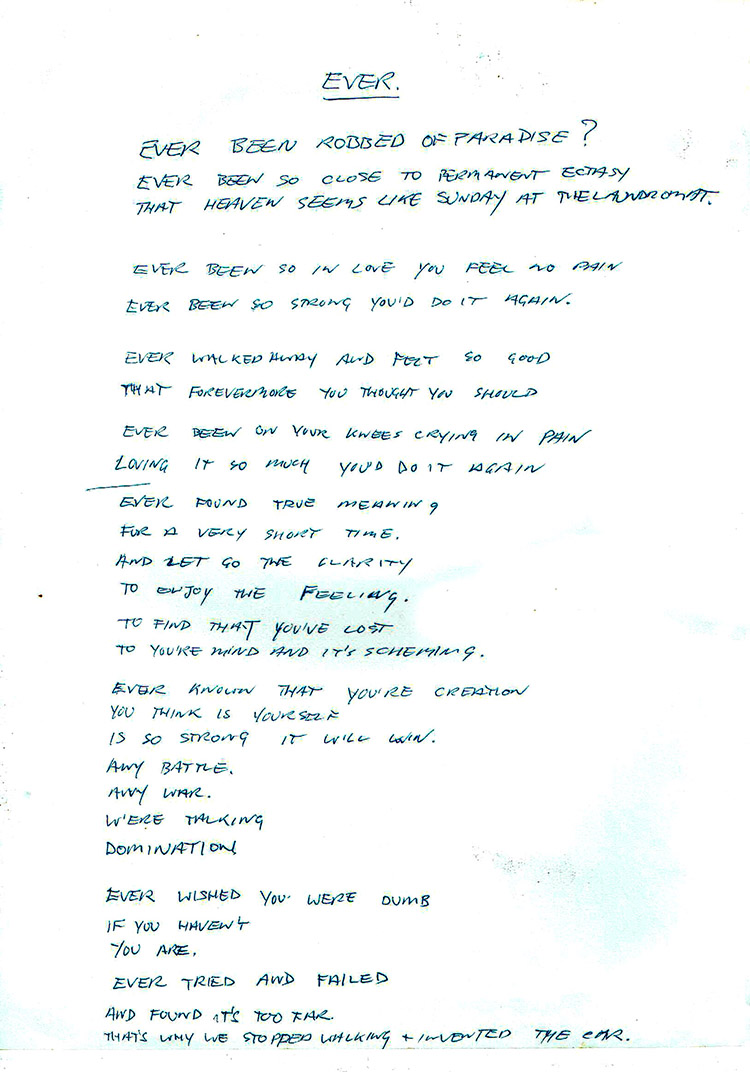 EVER.
EVER BEEN ROBBED OF PARADISE?
EVER BEEN SO CLOSE TO PERMANENT ECTASY
THAT HEAVEN SEEMS LIKE SUNDAY AT THE LAUNDROMAT.
EVER BEEN SO IN LOVE YOU FEEL NO PAIN
EVER BEEN SO STRONG YOU'D DO IT AGAIN.
EVER WALKED AWAY AND FELT SO GOOD
THAT FOREVERMORE YOU THOUGHT YOU SHOULD
EVER BEEN ON YOUR KNEES CRYING IN PAIN
LOVING IT SO MUCH YOU'D DO IT AGAIN
EVER FOUND TRUE MEANING
FOR A VERY SHORT TIME.
AND LET GO THE CLARITY
TO ENJOY THE FEELING.
TO FIND THAT YOU'VE LOST
TO YOU'RE MIND AND IT'S SCHEMING.
EVER KNOWN THAT YOU'RE CREATION
YOU THINK IS YOURSELF
IS SO STRONG IT WILL WIN.
ANY BATTLE.
ANY WAR.
W'ERE TALKING
DOMINATION
EVER WISHED YOU WERE DUMB
IF YOU HAVEN'T
YOU ARE.
EVER TRIED AND FAILED
AND FOUND IT'S TOO FAR.
THAT'S WHY WE STOPPED WALKING + INVENTED THE CAR.